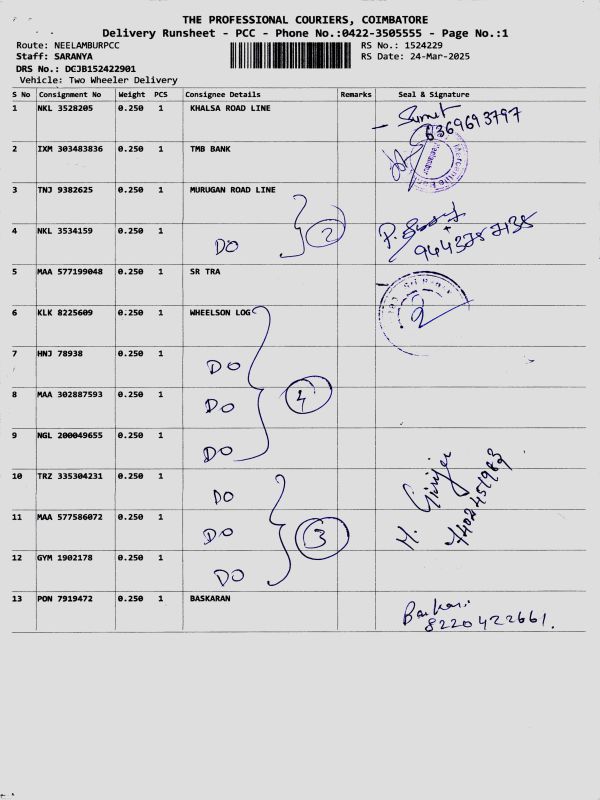 THE PROFESSIONAL COURIERS, COIMBATORE
Delivery Runsheet - PCC - Phone No.:0422-3505555 - Page No.:1
Route: NEELAMBURPCC RS No.: 1524229
Staff: SARANYA RS Date: 24-Mar-2025
DRS No.: DCJB152422901
Vehicle: Two Wheeler Delivery
S No Consignment No Weight PCS Consignee Details Remarks Seal & Signature
1 NKL 3528205 0.250 1 KHALSA ROAD LINE
6369693797
2 IXM 303483836 0.250 1 TMB BANK
3 TNJ 9382625 0.250 1 MURUGAN ROAD LINE
4 NKL 3534159 0.250 1 DO 2
5 MAA 577199048 0.250 1 SR TRA
6 KLK 8225609 0.250 1 WHEELSON LOG
7 HNJ 78938 0.250 1 DO
8 MAA 302887593 0.250 1 DO 4
9 NGL 200049655 0.250 1 DO
10 TRZ 335304231 0.250 1 DO
11 MAA 577586072 0.250 1 DO 3
12 GYM 1902178 0.250 1 DO
13 PON 7919472 0.250 1 BASKARAN
8220422661.